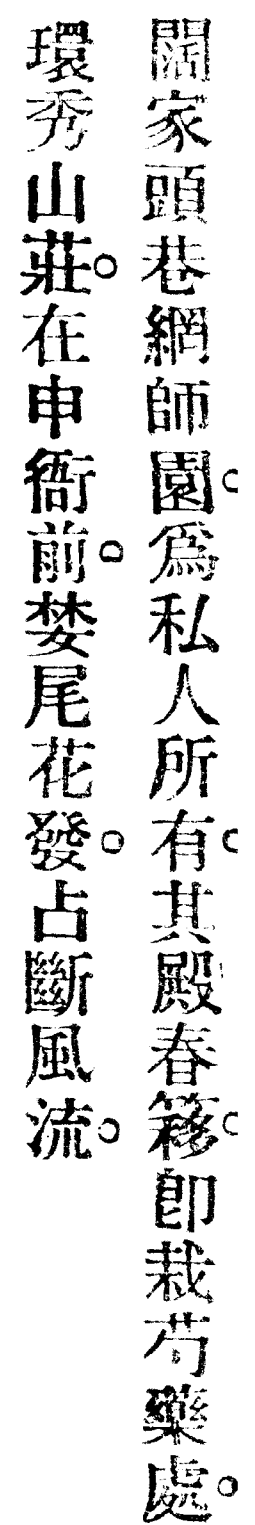 闊家頭巷網師園。爲私人所有。其殿春簃。卽栽芍藥處。
環秀山莊。在申衙前。婪尾花發。占斷風流。